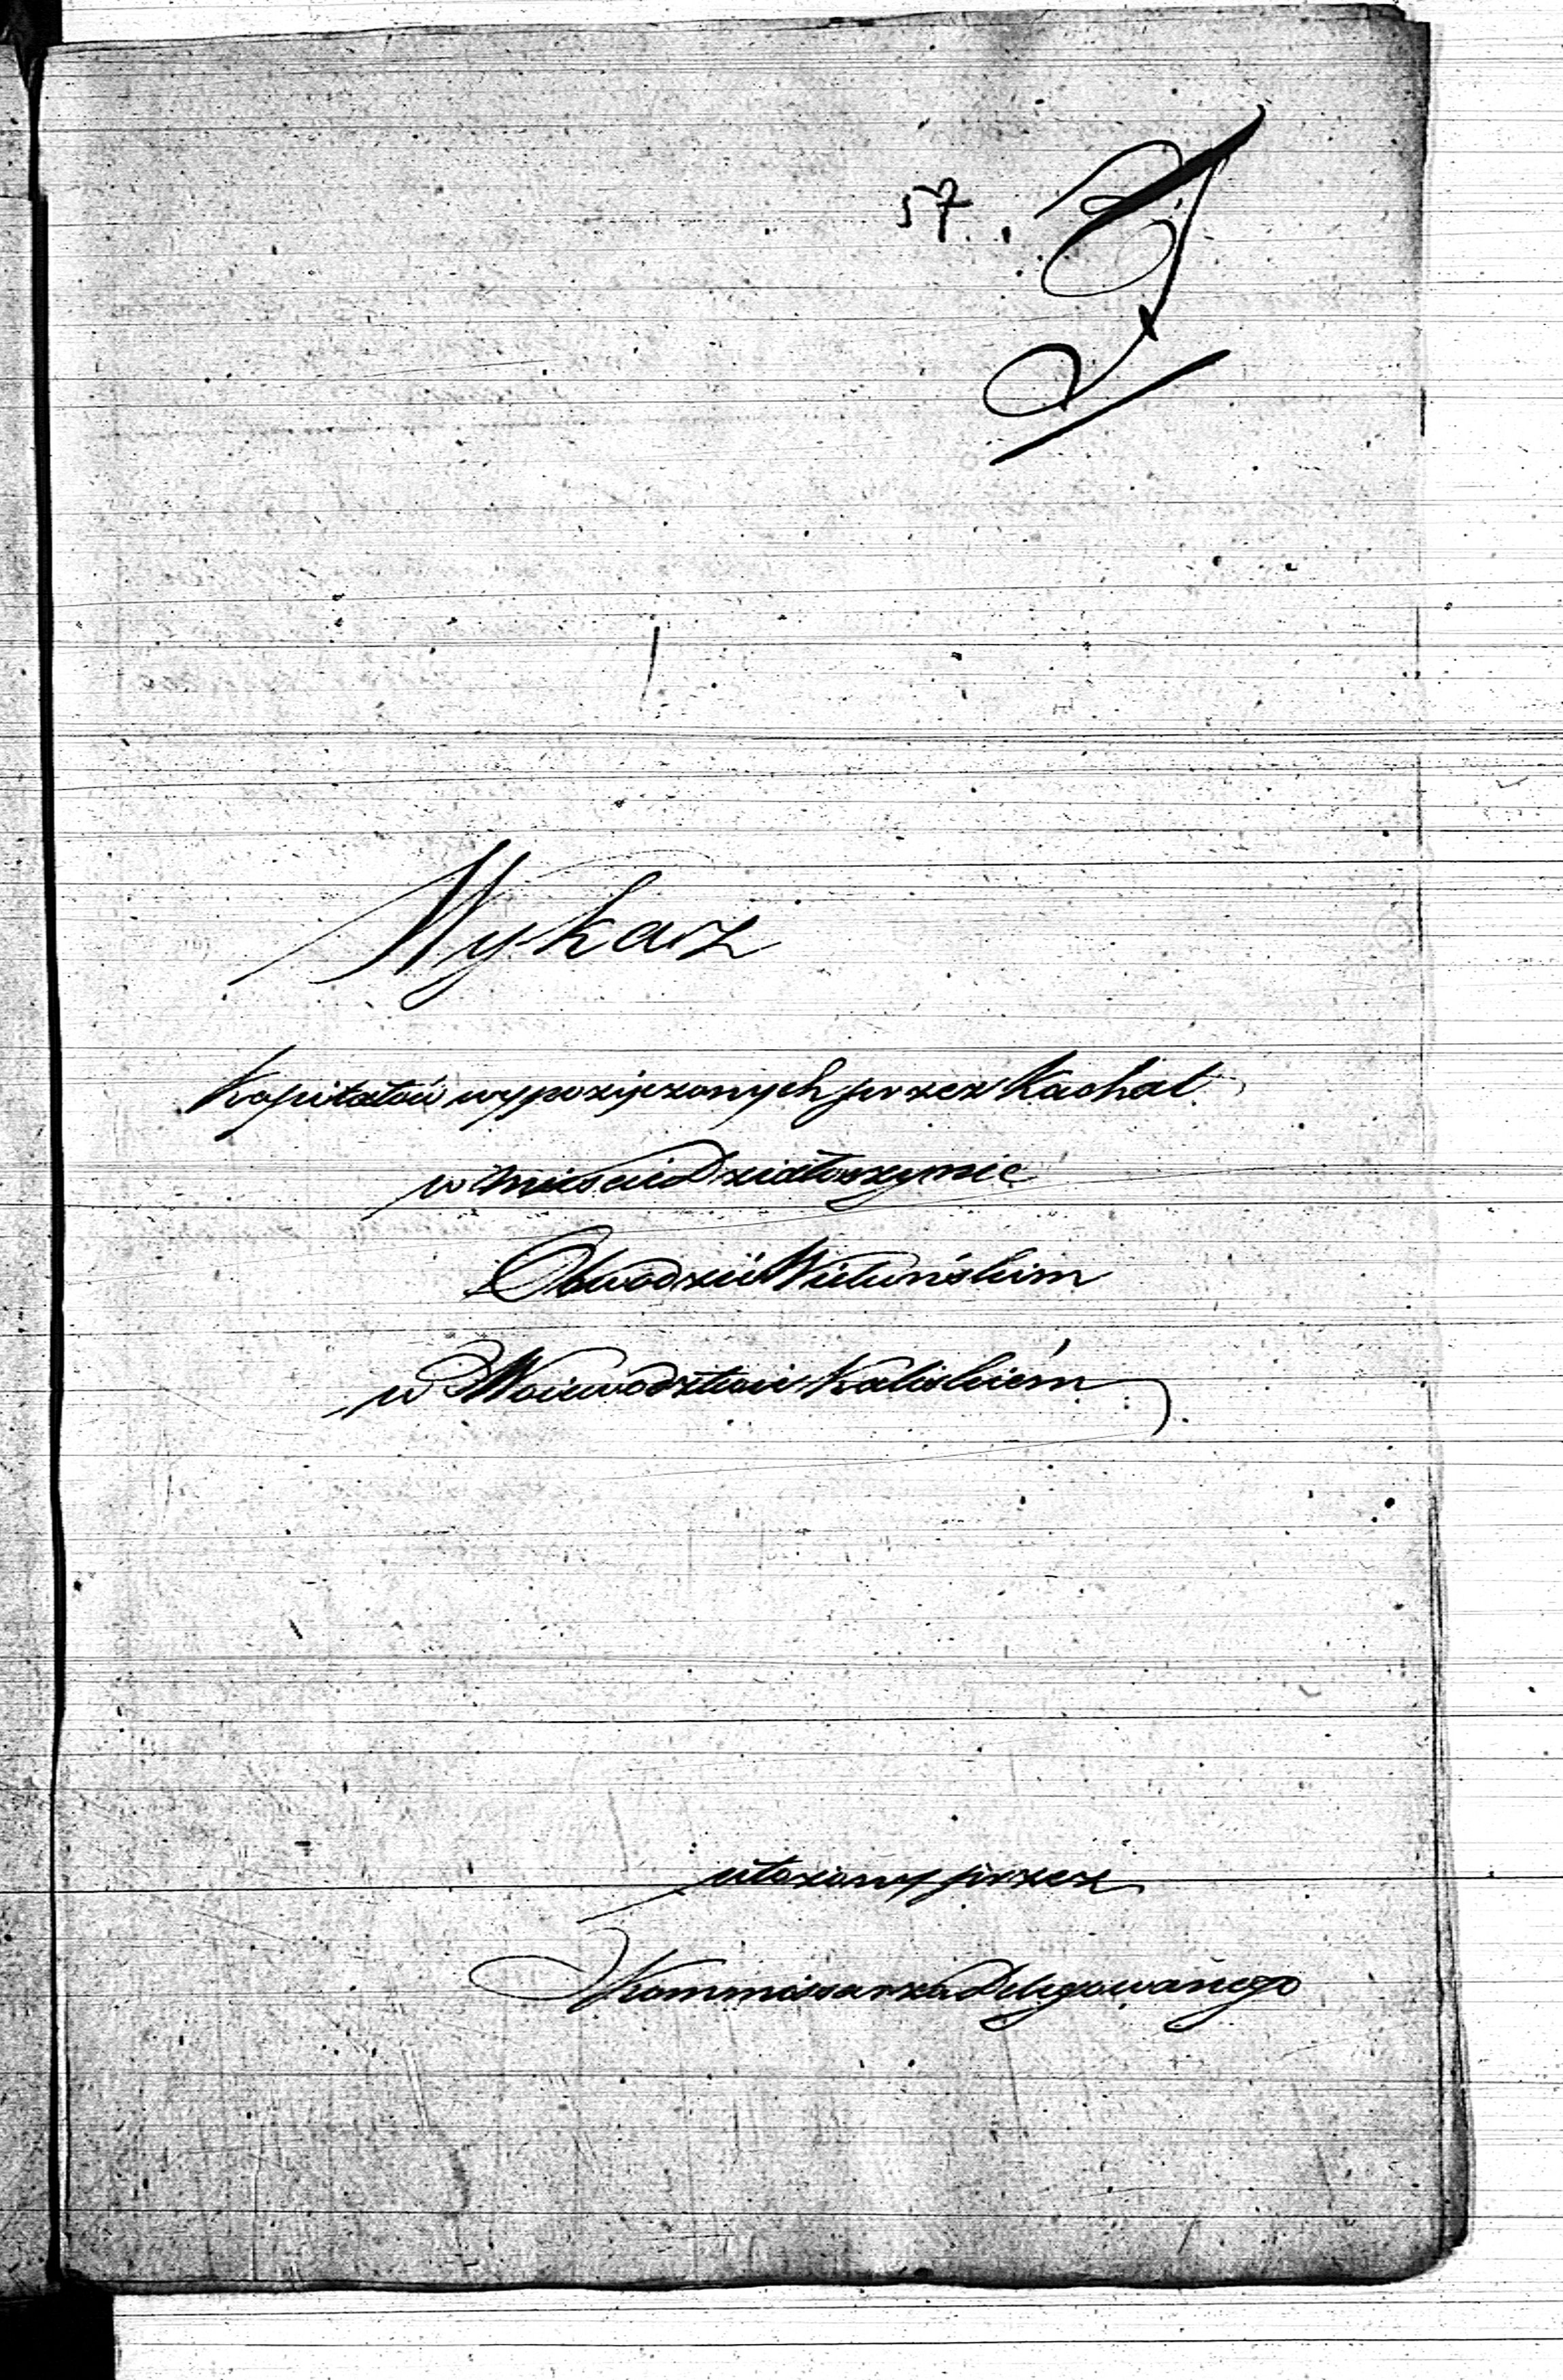 57.
Wykaz
Kapitałów wypożyczonych przez Kachał
w mieście Działoszynie
Obwodzie Wieluńskim
w Woiewodztwie Kaliskiém
ułożony przez
Kommissarza Delegowanego